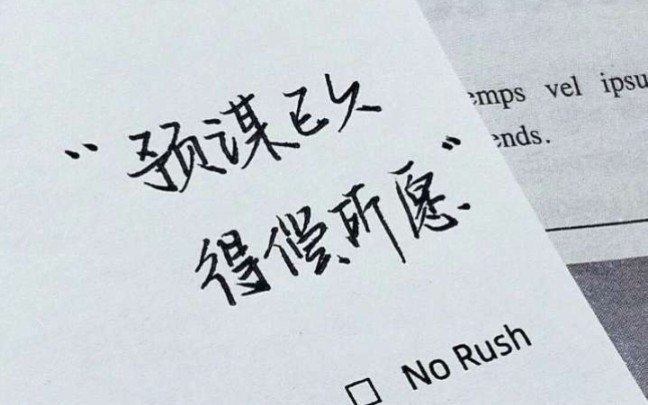 “预谋已久
得偿所愿”
No Rush
vel ipsu